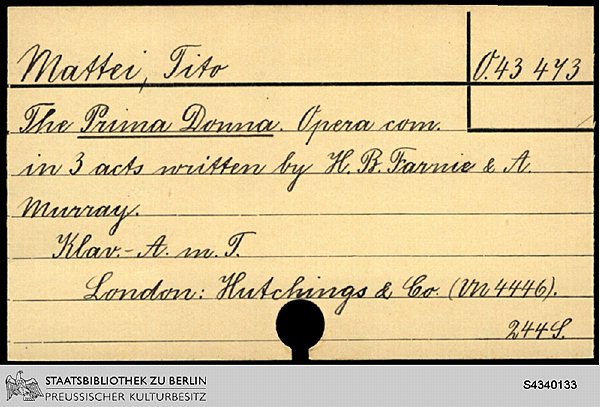 Mattei, Tito
O.43 473
The Prima Donna. Opera com.
in 3 acts written by H. B. Farnie & A.
Murray.
Klav.-A. m. T.
London: Hutchings & Co. (VN 4446).
244 S.
STAATSBIBLIOTHEK ZU BERLIN
PREUSSISCHER KULTURBESITZ
S4340133